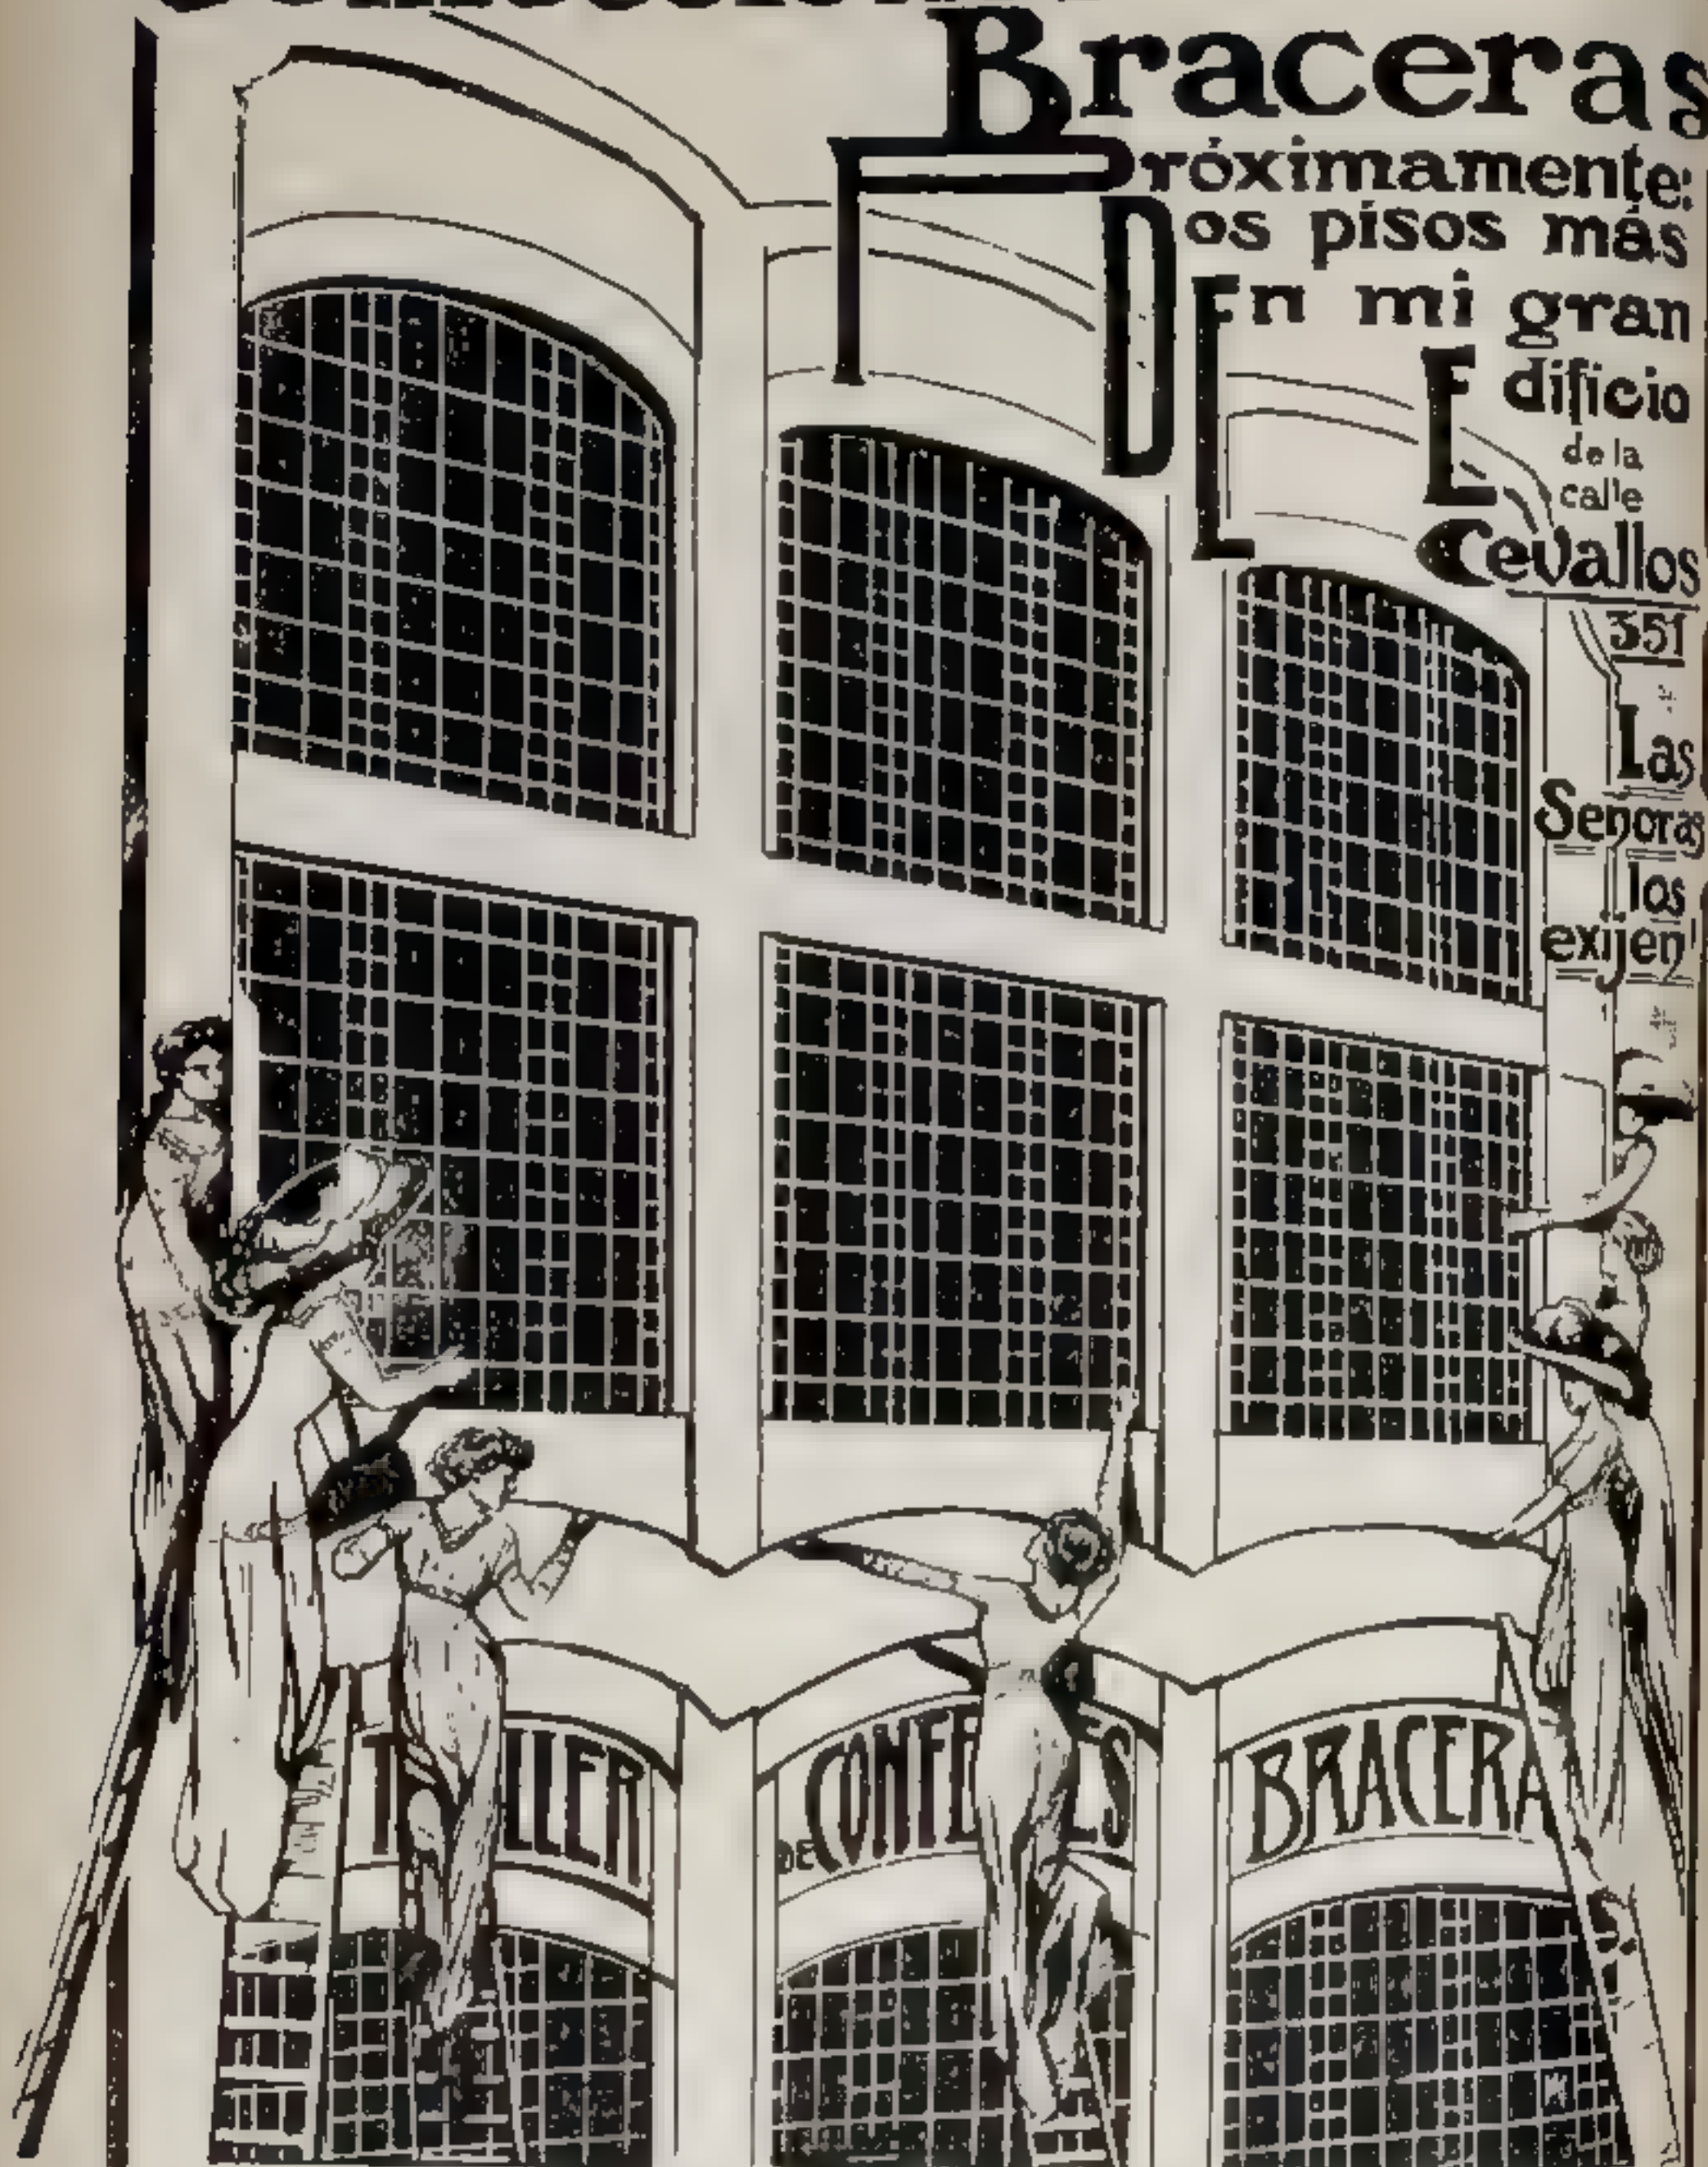 Braceras
Próximamente:
Dos pisos más
En mi gran
Edificio
de la
calle
Cevallos
351
Las
Señoras
los
exijen
DE
BRACERA